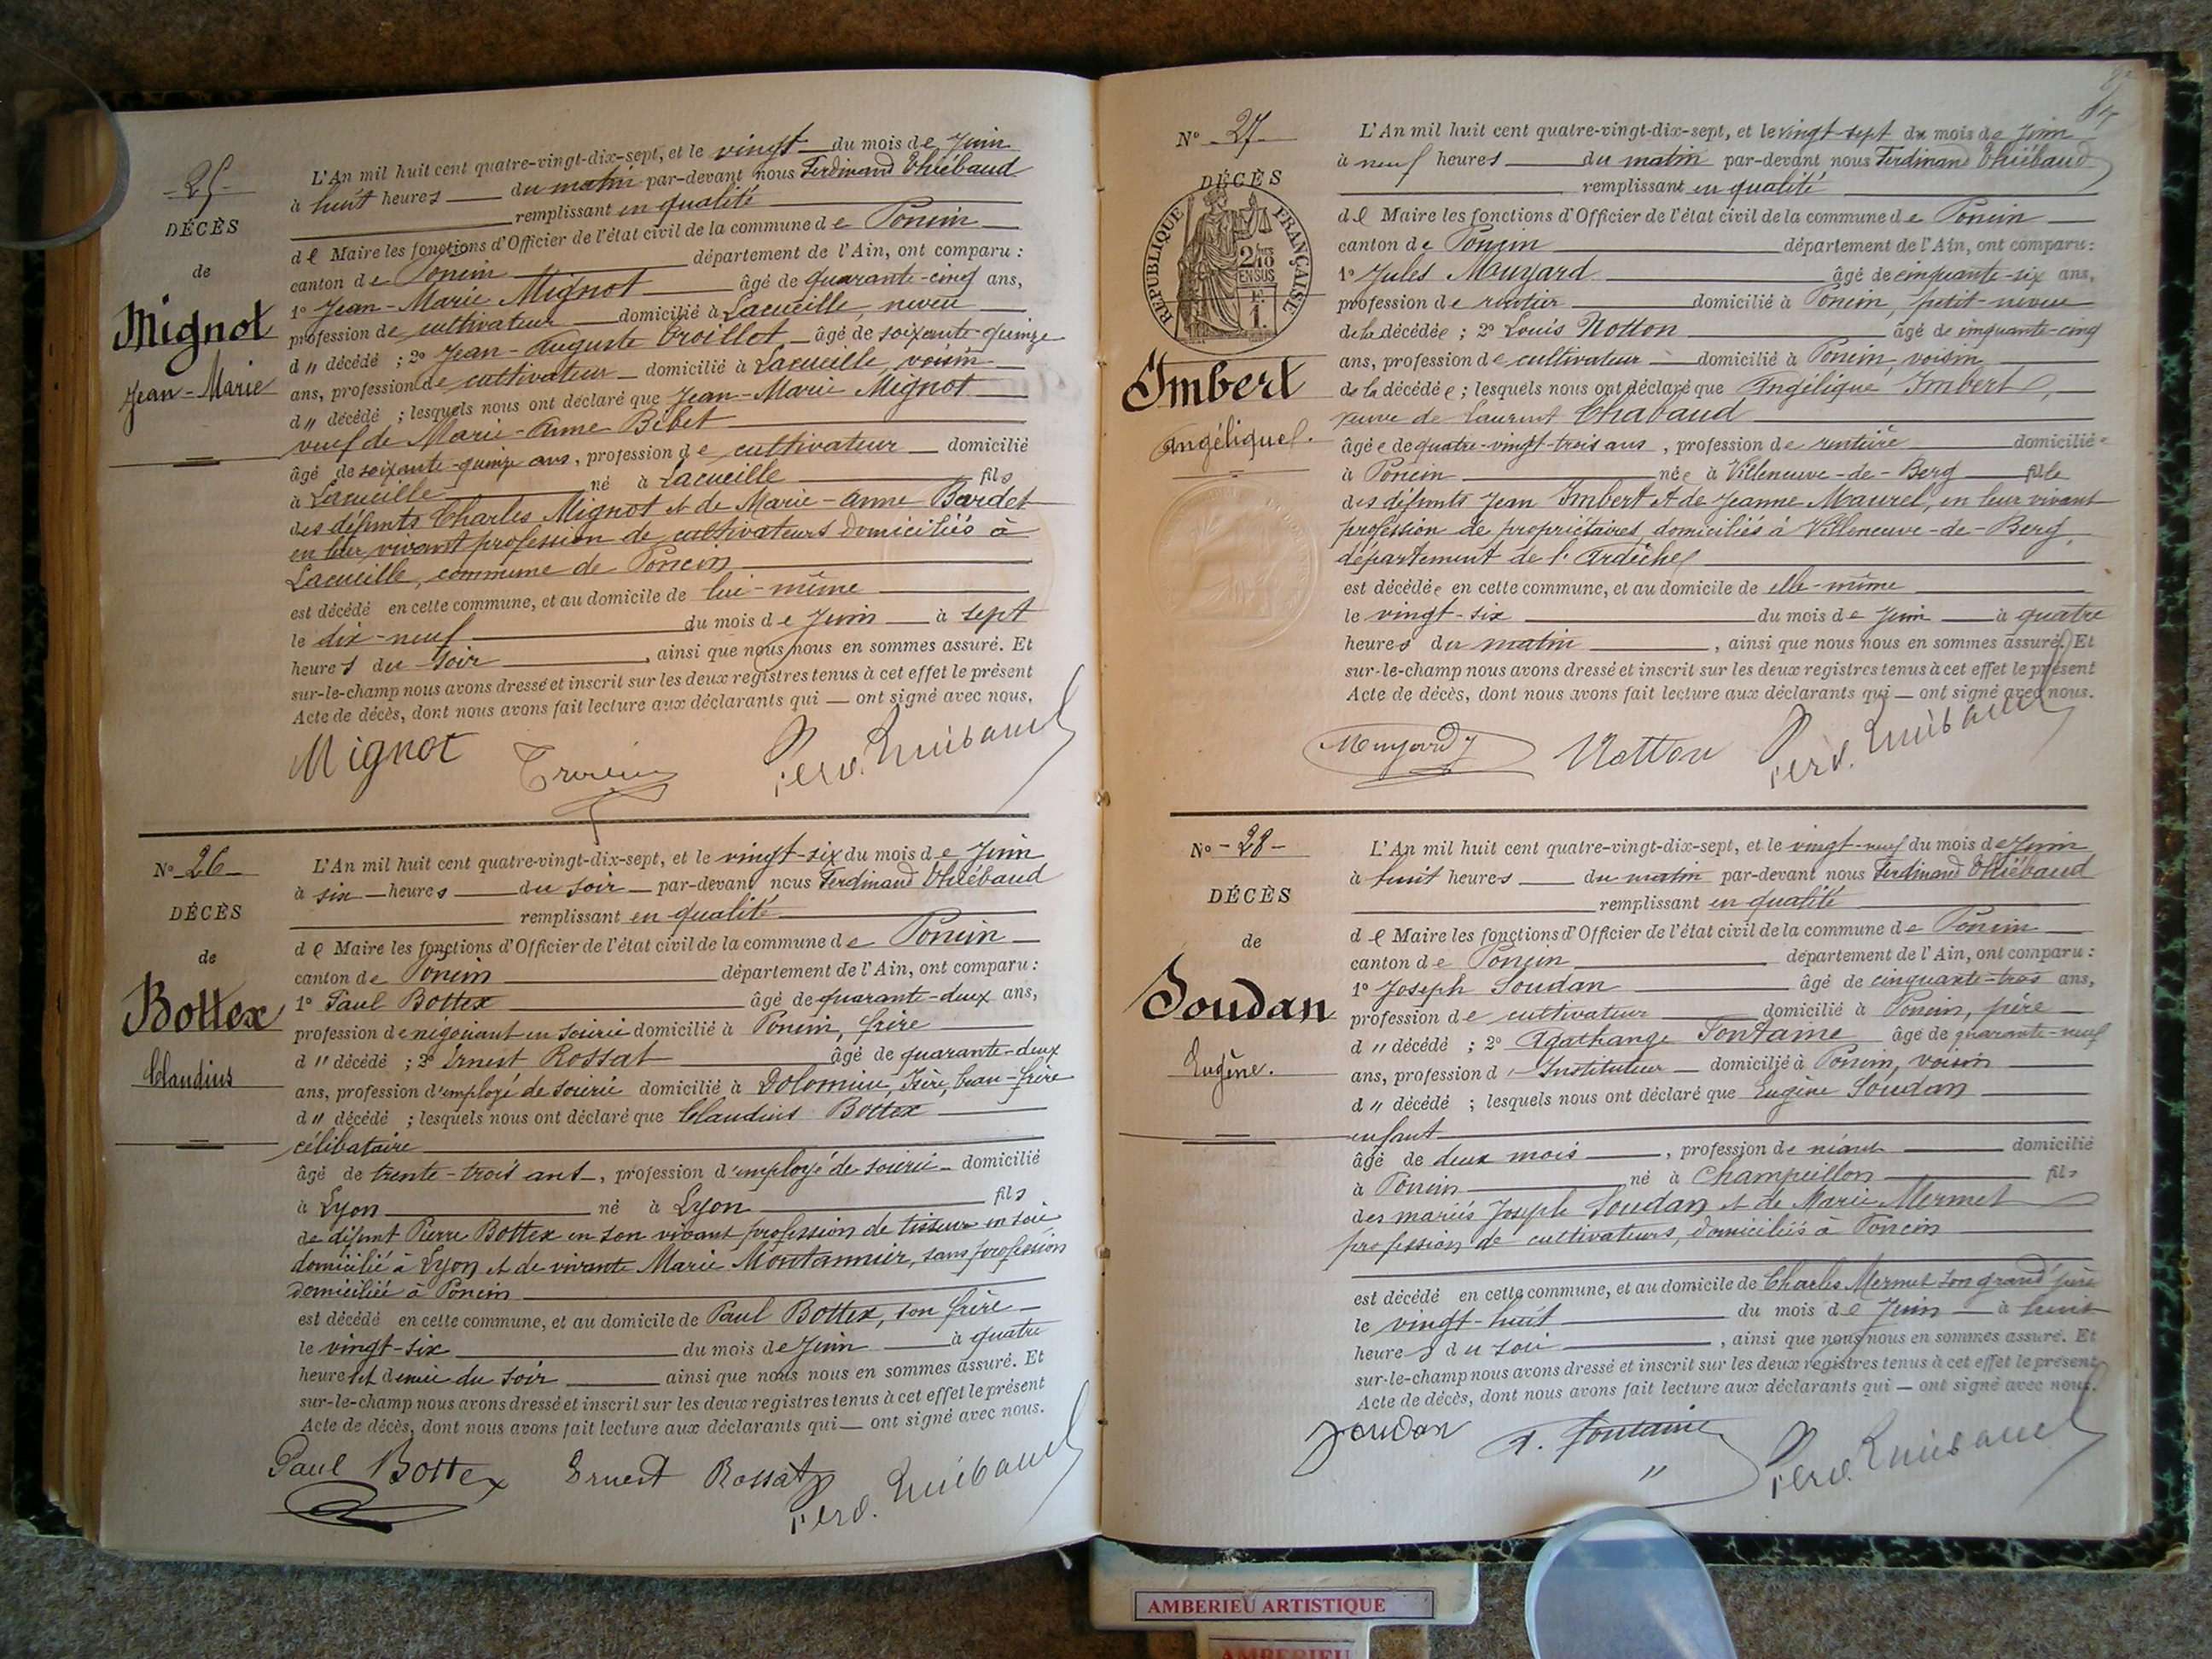 -25-
DÉCÈS
de
Mignot
Jean-Marie
L'An mil huit cent quatre-vingt-dix-sept, et le vingt du mois de Juin
à huit heures du matin par-devant nous Ferdinand Thiébaud
remplissant en qualité
de Maire les fonctions d'Officier de l'état civil de la commune de Poncin
canton de Poncin département de l'Ain, ont comparu :
1º Jean-Marie Mignot âgé de quarante-cinq ans,
profession de cultivateur domicilié à Lacueille, neveu
d " décédé ; 2º Jean-Auguste Croillot, âgé de soixante-quinze
ans, profession de cultivateur domicilié à Lacueille, voisin
d " décédé ; lesquels nous ont déclaré que Jean-Marie Mignot
veuf de Marie-Anne Bébet
âgé de soixante-quinze ans, profession de cultivateur domicilié
à Lacueille né à Lacueille fils
des défunts Charles Mignot et de Marie-Anne Bardet
en leur vivant profession de cultivateurs domiciliés à
Lacueille, commune de Poncin
est décédé en cette commune, et au domicile de lui-même
le dix-neuf du mois de Juin à sept
heures du soir, ainsi que nous nous en sommes assuré. Et
sur-le-champ nous avons dressé et inscrit sur les deux registres tenus à cet effet le présent
Acte de décès, dont nous avons fait lecture aux déclarants qui — ont signé avec nous.
Mignot Ferd. Thiébaud
Nº 26
DÉCÈS
de
Bottex
Claudius
L'An mil huit cent quatre-vingt-dix-sept, et le vingt-six du mois de Juin
à six heures du soir par-devant nous Ferdinand Thiébaud
remplissant en qualité
de Maire les fonctions d'Officier de l'état civil de la commune de Poncin
canton de Poncin département de l'Ain, ont comparu :
1º Paul Bottex âgé de quarante-deux ans,
profession de négociant en soierie domicilié à Poncin, frère
d " décédé ; 2º Ernest Rossat âgé de quarante-deux
ans, profession d'employé de soierie domicilié à Dolomieu, Isère, beau-frère
d " décédé ; lesquels nous ont déclaré que Claudius Bottex
célibataire
âgé de trente-trois ans, profession d'employé de soierie domicilié
à Lyon né à Lyon fils
de défunt Pierre Bottex en son vivant profession de tisseur en soie
domicilié à Lyon et de vivante Marie Montannier, sans profession
domiciliée à Poncin
est décédé en cette commune, et au domicile de Paul Bottex, son frère
le vingt-six du mois de Juin à quatre
heures et demie du soir ainsi que nous nous en sommes assuré. Et
sur-le-champ nous avons dressé et inscrit sur les deux registres tenus à cet effet le présent
Acte de décès, dont nous avons fait lecture aux déclarants qui — ont signé avec nous.
Paul Bottex Ernest Rossat Ferd. Thiébaud
Nº 27
DÉCÈS
RÉPUBLIQUE FRANÇAISE
2/10
EN SUS
1
Imbert
Angélique
L'An mil huit cent quatre-vingt-dix-sept, et le vingt-sept du mois de Juin
à neuf heures du matin par-devant nous Ferdinand Thiébaud
remplissant en qualité
de Maire les fonctions d'Officier de l'état civil de la commune de Poncin
canton de Poncin département de l'Ain, ont comparu :
1º Jules Mouyard âgé de cinquante-six ans,
profession de rentier domicilié à Poncin, petit-neveu
de la décédée ; 2º Louis Notton âgé de cinquante-cinq
ans, profession de cultivateur domicilié à Poncin, voisin
de la décédée ; lesquels nous ont déclaré que Angélique Imbert,
veuve de Laurent Chabaud
âgée de quatre-vingt-trois ans, profession de rentière domiciliée
à Poncin née à Villeneuve-de-Berg fille
des défunts Jean Imbert et de Jeanne Maurel, en leur vivant
profession de propriétaires, domiciliés à Villeneuve-de-Berg,
département de l'Ardèche
est décédée en cette commune, et au domicile de elle-même
le vingt-six du mois de Juin à quatre
heures du matin, ainsi que nous nous en sommes assuré. Et
sur-le-champ nous avons dressé et inscrit sur les deux registres tenus à cet effet le présent
Acte de décès, dont nous avons fait lecture aux déclarants qui — ont signé avec nous.
Mouyard J Notton Ferd. Thiébaud
Nº -28-
DÉCÈS
de
Soudan
Eugène.
L'An mil huit cent quatre-vingt-dix-sept, et le vingt-neuf du mois de Juin
à huit heures du matin par-devant nous Ferdinand Thiébaud
remplissant en qualité
de Maire les fonctions d'Officier de l'état civil de la commune de Poncin
canton de Poncin département de l'Ain, ont comparu :
1º Joseph Soudan âgé de cinquante-trois ans,
profession de cultivateur domicilié à Poncin, père
d " décédé ; 2º Agathange Fontaine âgé de quarante-neuf
ans, profession d'Instituteur domicilié à Poncin, voisin
d " décédé ; lesquels nous ont déclaré que Eugène Soudan
enfant
âgé de deux mois, profession de néant domicilié
à Poncin né à Champeillon fils
des mariés Joseph Soudan et de Marie Mermet
profession de cultivateurs, domiciliés à Poncin
est décédé en cette commune, et au domicile de Charles Mermet son grand'père
le vingt-huit du mois de Juin à huit
heures du soir, ainsi que nous nous en sommes assuré. Et
sur-le-champ nous avons dressé et inscrit sur les deux registres tenus à cet effet le présent
Acte de décès, dont nous avons fait lecture aux déclarants qui — ont signé avec nous.
Soudan A. Fontaine Ferd. Thiébaud
AMBERIEU ARTISTIQUE
AMBERIEU